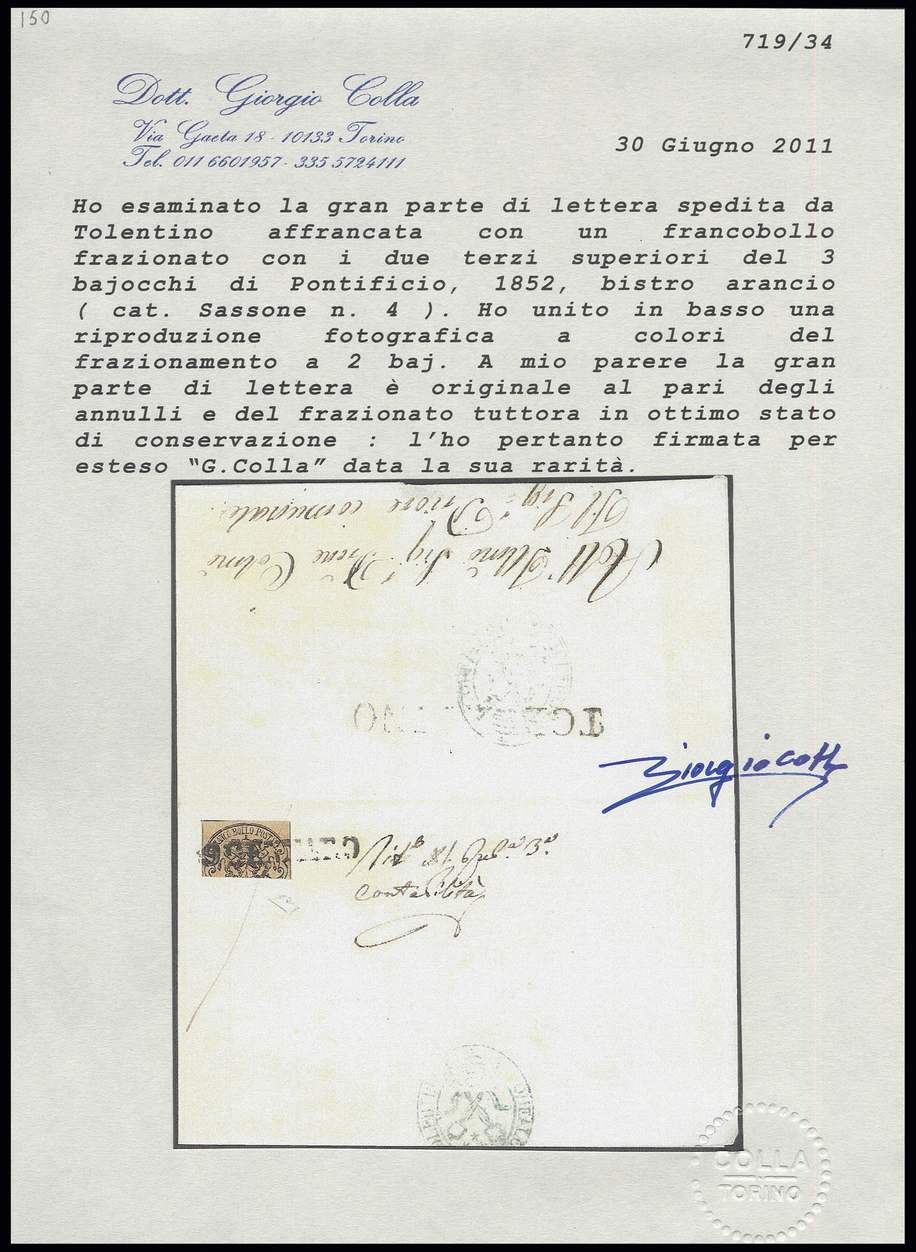 150
719/34
Dott. Giorgio Colla
Via Gaeta 18 - 10133 Torino
Tel. 011 6601957 - 335 5724111
30 Giugno 2011
Ho esaminato la gran parte di lettera spedita da
Tolentino affrancata con un francobollo
frazionato con i due terzi superiori del 3
bajocchi di Pontificio, 1852, bistro arancio
( cat. Sassone n. 4 ). Ho unito in basso una
riproduzione fotografica a colori del
frazionamento a 2 baj. A mio parere la gran
parte di lettera è originale al pari degli
annulli e del frazionato tuttora in ottimo stato
di conservazione : l'ho pertanto firmata per
esteso “G.Colla” data la sua rarità.
Il Sig. Priore comunale
All' Illmo Sig.
FRANCO BOLLO POSTALE
3a
contabilità
COLLA
TORINO